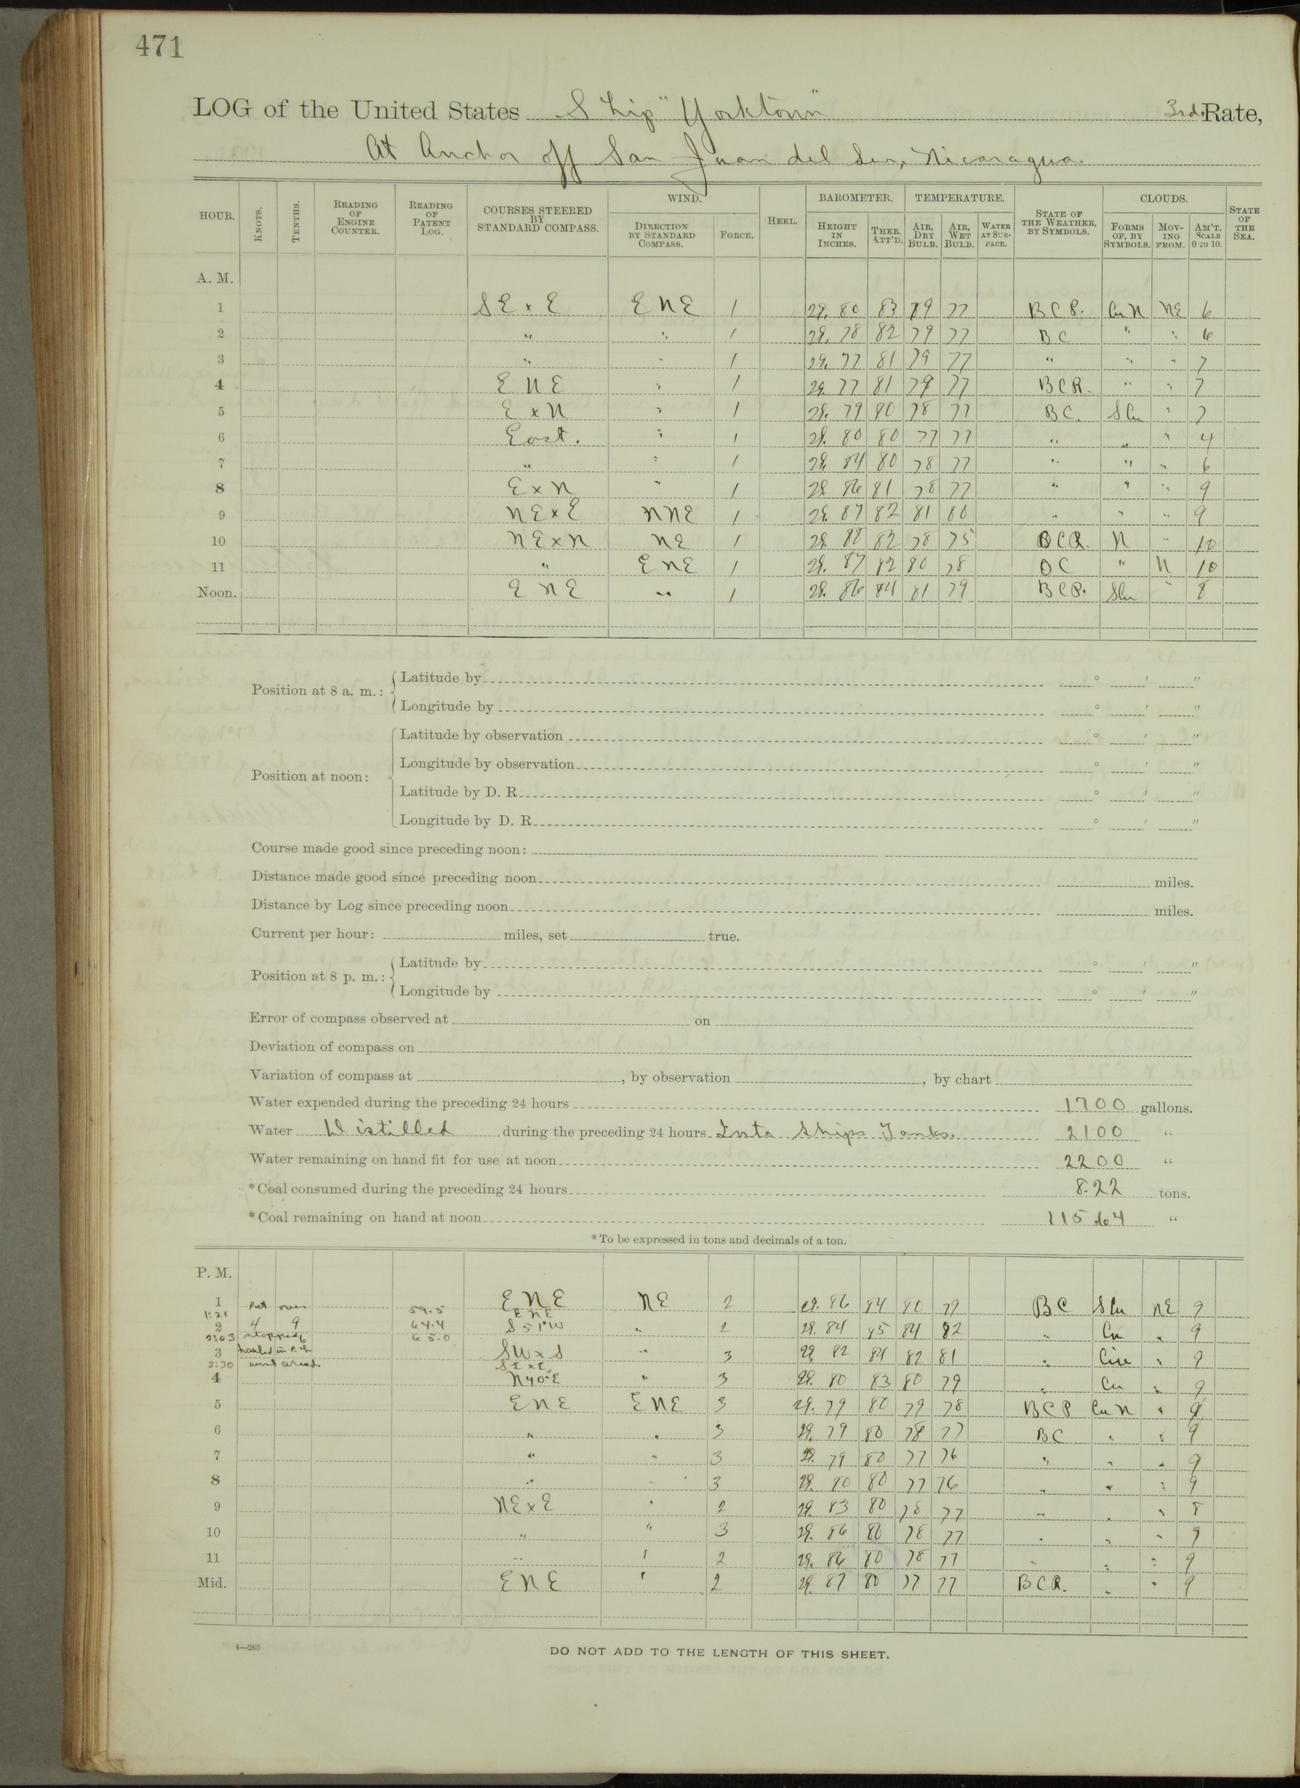 471
LOG of the United States Ship "Yorktown" 3rd Rate,
At Anchor off San Juan del Sur, Nicaragua.
HOUR. KNOTS. TENTHS. READING OF ENGINE COUNTER. READING OF PATENT LOG. COURSES STEERED BY STANDARD COMPASS. WIND. DIRECTION BY STANDARD COMPASS. FORCE. HEEL. BAROMETER. HEIGHT IN INCHES. THER. ATT'D. TEMPERATURE. AIR, DRY BULB. AIR, WET BULB. WATER AT SURFACE. STATE OF THE WEATHER, BY SYMBOLS. CLOUDS. FORMS OF, BY SYMBOLS. MOVING FROM. AM'T. SCALE 0 TO 10. STATE OF THE SEA.
A. M.
1 SE x E ENE 1 29.80 83 79 77 BCP. Cu N NE 6
2 " " 1 29.78 82 79 77 BC " " 6
3 " " 1 29.77 81 79 77 " " " 7
4 ENE " 1 29.77 81 79 77 BCR. " " 7
5 E x N " 1 29.79 80 78 77 BC. S Cu " 7
6 East. " 1 29.80 80 77 77 " " " 4
7 " " 1 29.84 80 78 77 " " " 6
8 E x N " 1 29.86 81 78 77 " " " 9
9 NE x E NNE 1 29.87 82 81 80 " " " 9
10 NE x N NE 1 29.88 82 78 75 OCR. N " 10
11 " ENE 1 29.87 82 80 78 OC " N 10
Noon. ENE " 1 29.86 84 81 79 BCP. S Cu " 8
Position at 8 a. m.: Latitude by ° ' "
Longitude by ° ' "
Position at noon: Latitude by observation ° ' "
Longitude by observation ° ' "
Latitude by D. R. ° ' "
Longitude by D. R. ° ' "
Course made good since preceding noon:
Distance made good since preceding noon miles.
Distance by Log since preceding noon miles.
Current per hour: miles, set true.
Position at 8 p. m.: Latitude by ° ' "
Longitude by ° ' "
Error of compass observed at on
Deviation of compass on
Variation of compass at , by observation , by chart
Water expended during the preceding 24 hours 1700 gallons.
Water Distilled during the preceding 24 hours Into Ships Tanks. 2100 "
Water remaining on hand fit for use at noon 2200 "
*Coal consumed during the preceding 24 hours 8.22 tons.
*Coal remaining on hand at noon 115 "
*To be expressed in tons and decimals of a ton.
P. M.
1 ENE NE 2 29.86 84 77 BC S Cu NE 9
1:21 Put over 59.5 ENE
2 4 9 64.4 S 51° W " 2 29.84 85 84 82 " Cu " 9
2:03 stopped 65.0
3 hauled in P. L. SW x S " 3 29.82 84 82 81 " " 9
2:30 SE x E
4 N 40° E " 3 29.80 83 80 79 " Cu " 9
5 ENE ENE 3 29.79 80 79 78 BCP Cu N " 9
6 " " 3 29.79 80 78 77 BC " " 9
7 " " 3 29.79 80 77 76 " " " 9
8 " " 3 29.80 80 77 76 " " " 9
9 NE x E " 2 29.83 80 78 77 " " " 8
10 " " 3 29.86 80 78 77 " " " 9
11 " " 2 29.86 80 78 77 " " " 9
Mid. ENE " 2 29.87 80 77 77 BCR. " " 9
4—265
DO NOT ADD TO THE LENGTH OF THIS SHEET.